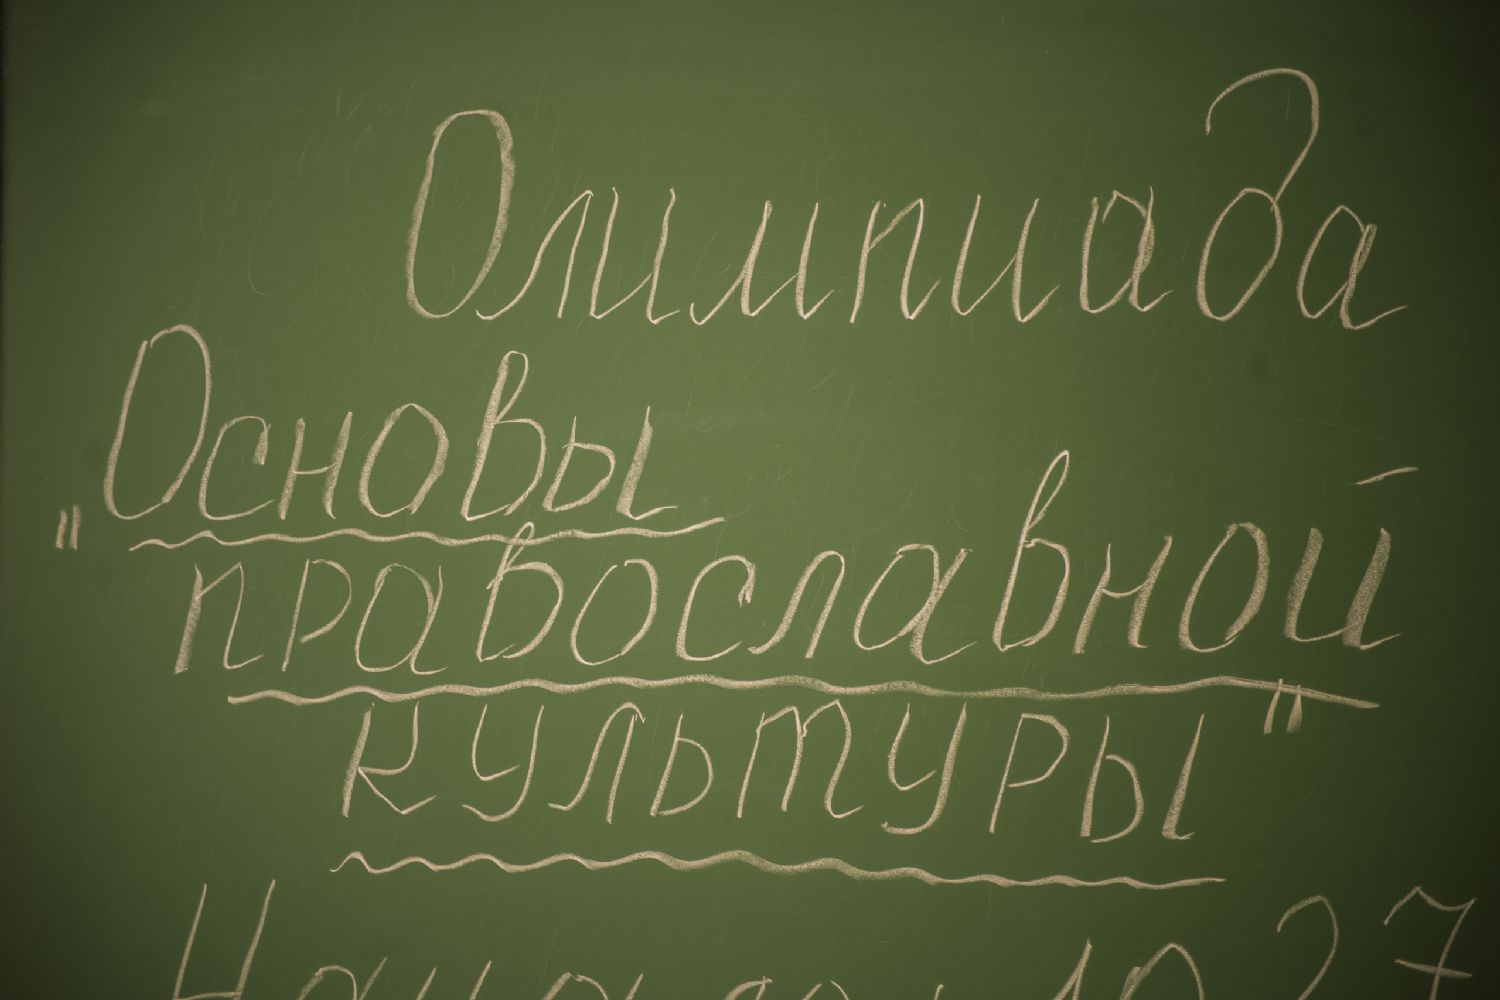 Олимпиада
„Основы
православной
культуры"
Начало: 10